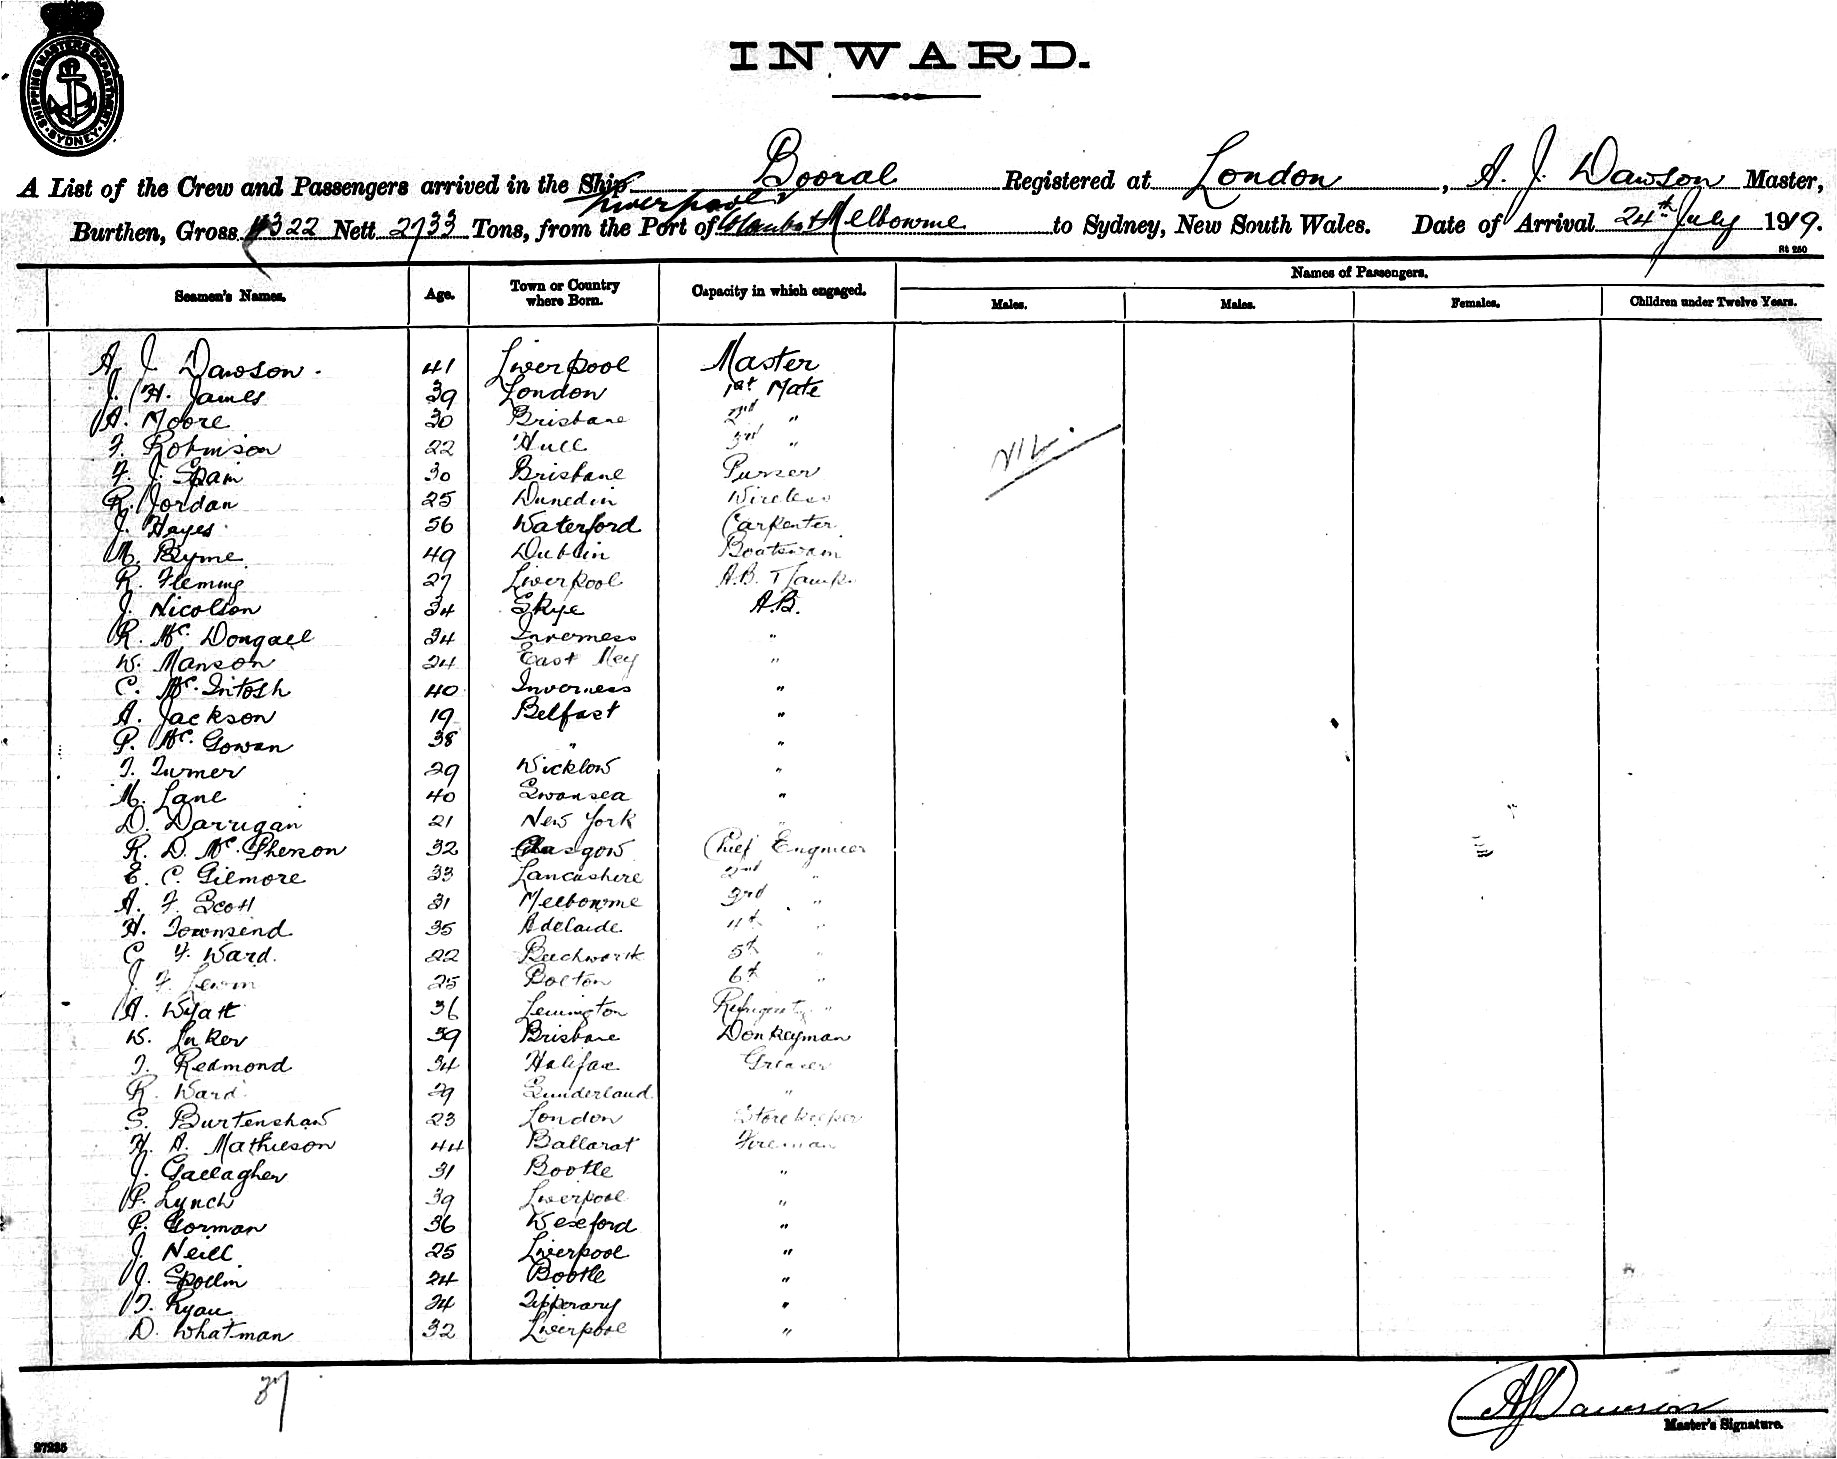 SHIPPING MASTERS DEPARTMENT SYDNEY
INWARD.
A List of the Crew and Passengers arrived in the Ship Booral Registered at London, A. J. Dawson Master,
Liverpool
Burthen, Gross 4322 Nett 2733 Tons, from the Port of & Melbourne to Sydney, New South Wales. Date of Arrival 24th July 1919.
Rt 250
Names of Passengers.
Seamen's Names. Age. Town or Country where Born. Capacity in which engaged. Males. Males. Females. Children under Twelve Years.
A. J. Dawson. 41 Liverpool Master
J. H. James 39 London 1st Mate
A. Moore 30 Brisbane 2nd "
F. Robinson 22 Hull 3rd "
Nil.
F. J. Spain 30 Brisbane Purser
R. Jordan 25 Dunedin Wireless
J. Hayes 56 Waterford Carpenter
M. Byrne 49 Dublin Boatswain
R. Fleming 27 Liverpool A.B. & Lamps
J. Nicolson 34 Skye A.B.
R. McDongall 34 Inverness "
W. Manson 24 East Mey "
C. McIntosh 40 Inverness "
A. Jackson 19 Belfast "
P. McGowan 38 " "
T. Turner 29 Wicklow "
M. Lane 40 Swansea "
D. Darrugan 21 New York "
R. D. McPherson 32 Glasgow Chief Engineer
E. C. Gilmore 33 Lancashire 2nd "
A. F. Scott 31 Melbourne 3rd "
H. Townsend 35 Adelaide 4th "
C. F. Ward. 22 Beechworth 5th "
J. F. Lewin 25 Bolton 6th "
A. Wyatt 36 "
W. Inker 39 Brisbane Donkeyman
T. Redmond 34 Halifax Greaser
R. Ward 29 Sunderland "
S. Burtenshaw 23 London Storekeeper
H. A. Mathieson 44 Ballarat Fireman
J. Gallagher 31 Bootle "
P. Lynch 39 Liverpool "
P. Gorman 36 Wexford "
J. Neill 25 Liverpool "
J. Spollin 24 Bootle "
T. Ryan 24 Tipperary "
D. Whatman 32 Liverpool "
37
A J Dawson
Master's Signature.
27235